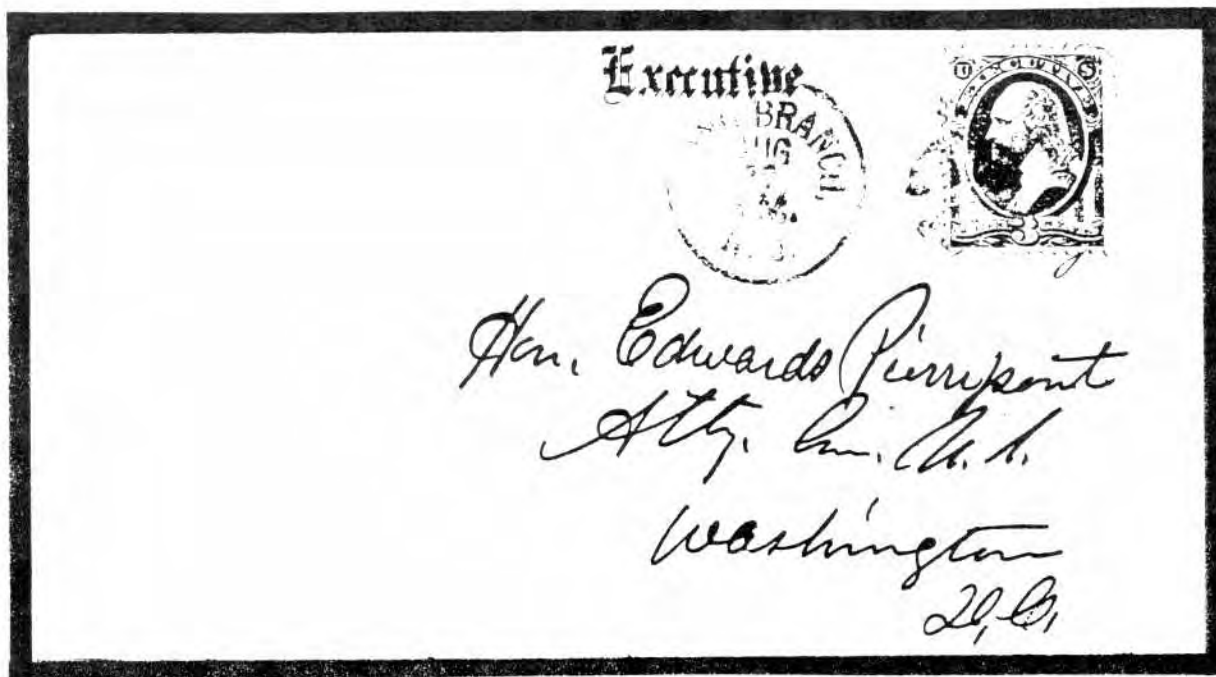 Executive
U S
BRANCH,
N. J.
3
Hon. Edwards Pierrepont
Atty. Gen. U. S.
Washington
D, C,